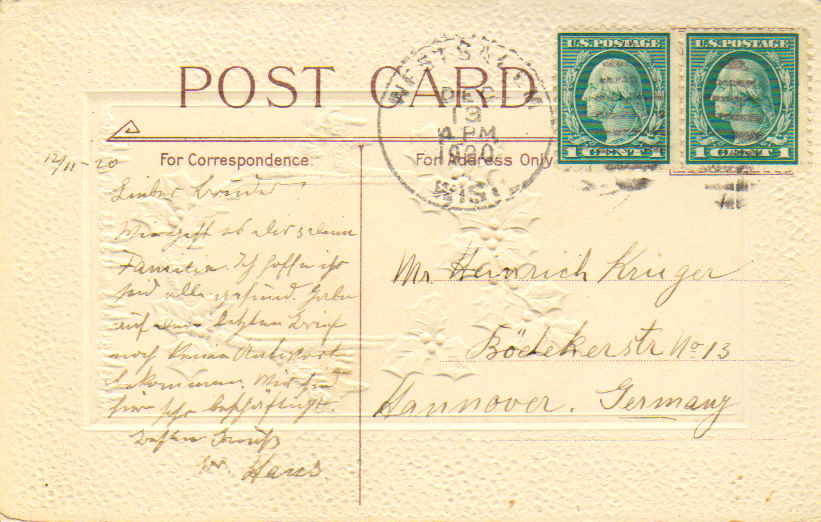 POST CARD
WEST SALEM
DEC
13
4 PM
1920
WIS.
U.S. POSTAGE
1 CENT 1
U.S. POSTAGE
1 CENT 1
For Correspondence.
For Address Only
12/11-20
Lieber Bruder
Wie geht es dir & deine
Familie. Ich hoffe ihr
seid alle gesund. Habe
auf den letzten Brief
noch keine Antwort
bekommen. Wir sind
hier sehr beschäftigt.
Besten Gruß
Hans.
Mr. Heinrich Krüger
Bödekerstr No 13
Hannover. Germany